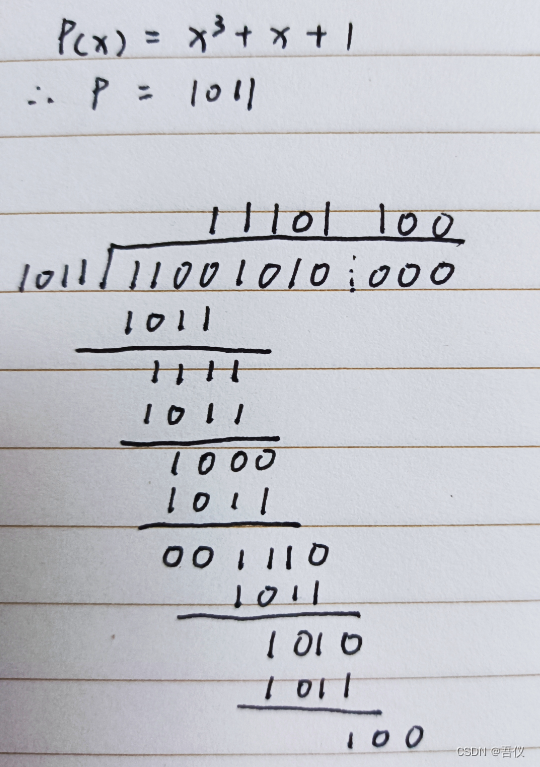 P(x) = x³ + x + 1
∴ P = 1011
11101 100
1011 11001010 ⋮ 000
1011
1111
1011
1000
1011
001110
1011
1010
1011
100
CSDN @吾仪